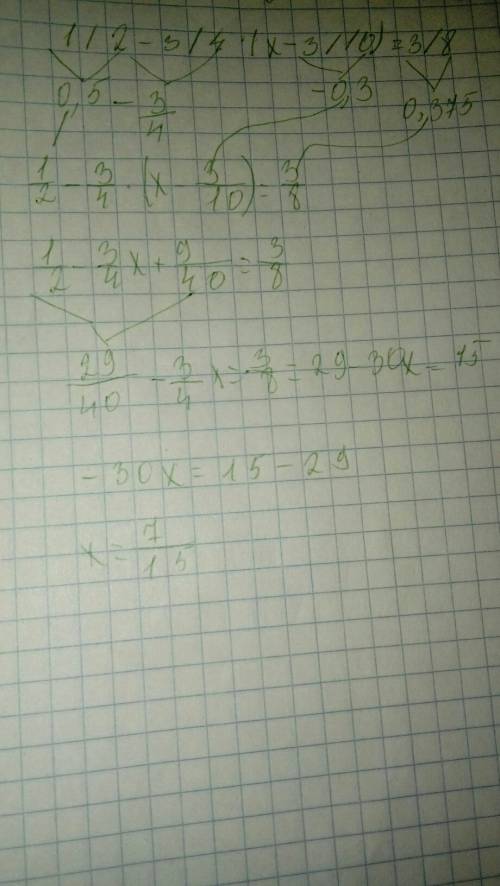 1/2 - 3/4 · (x - 3/10) = 3/8
0,5 - 3/4 -0,3 0,375
1/2 - 3/4 · (x - 3/10) = 3/8
1/2 - 3/4 x + 9/40 = 3/8
29/40 - 3/4 x = 3/8 = 29 - 30x = 15
- 30x = 15 - 29
x = 7/15